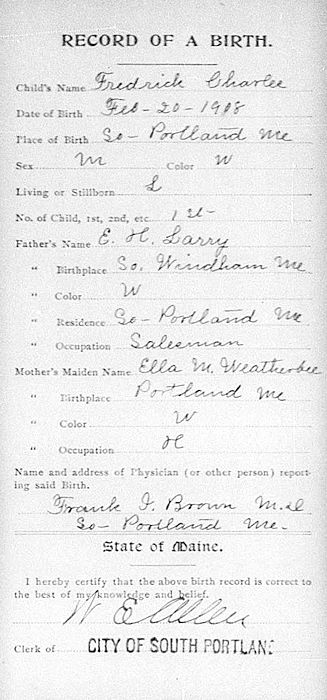 RECORD OF A BIRTH.
Child's Name Fredrick Charlee
Date of Birth Feb-20-1908
Place of Birth So-Portland Me
Sex M Color W
Living or Stillborn L
No. of Child, 1st, 2nd, etc. 1st-
Father's Name E. H. Larry
" Birthplace So. Windham Me
" Color W
" Residence So-Portland Me
" Occupation Salesman
Mother's Maiden Name Ella M. Weatherbee
" Birthplace Portland Me
" Color W
" Occupation H
Name and address of Physician (or other person) report-
ing said Birth.
Frank I. Brown M.D
So-Portland Me.
State of Maine.
I hereby certify that the above birth record is correct to
the best of my knowledge and belief.
W E Allen
Clerk of CITY OF SOUTH PORTLAND